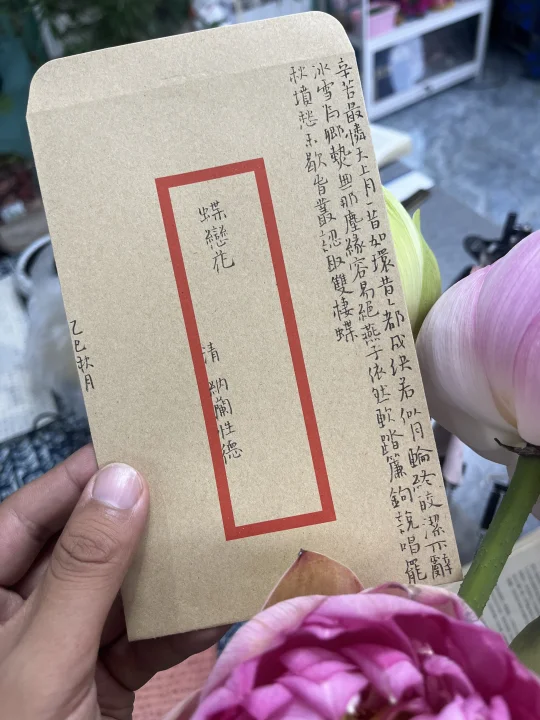 辛苦最憐天上月一昔如環昔〻都成玦若似月輪終皎潔不辭
冰雪為卿熱無那塵緣容易絕燕子依然軟踏簾鉤說唱罷
秋墳愁未歇春叢認取雙棲蝶
蝶戀花
清 納蘭性德
乙巳秋月